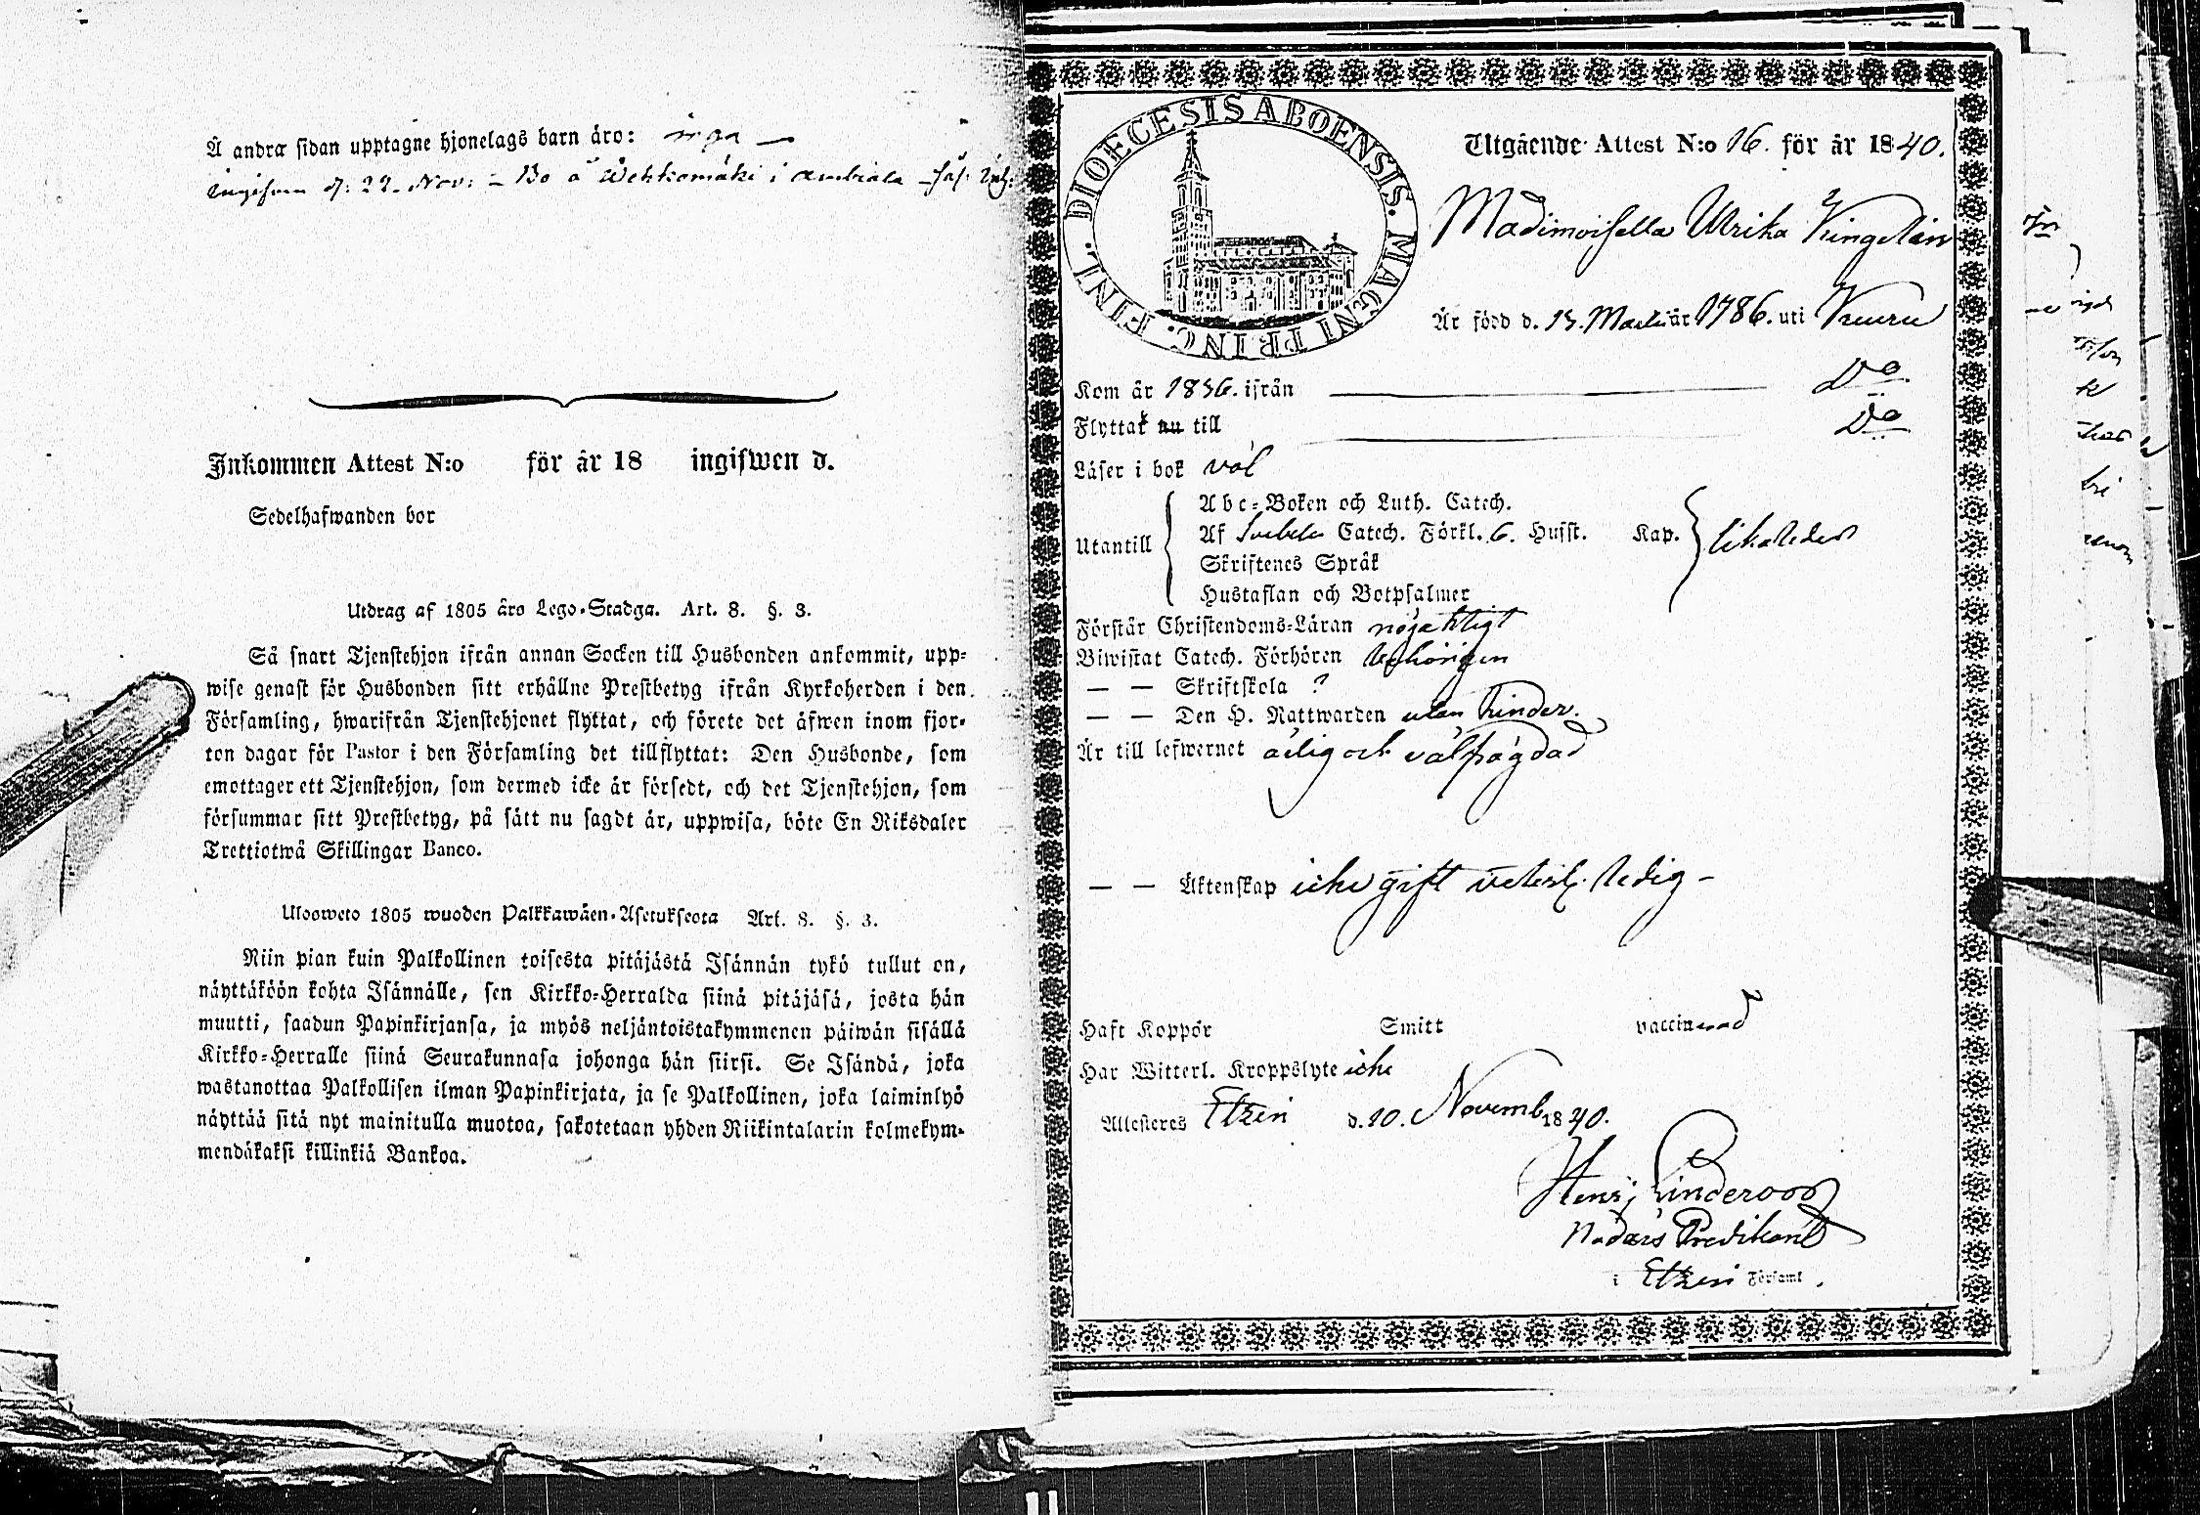 Å andra sidan upptagne hjonelags barn äro: inga —
d: 22. Nov: – Bo å Wehkomäki i
Inkommen Attest N:o för år 18 ingifwen d.
Sedelhafwanden bor
Utdrag af 1805 års Lego-Stadga. Art. 8. §. 3.
Så snart Tjenstehjon ifrån annan Socken till Husbonden ankommit, upp-
wise genast för Husbonden sitt erhållne Prestbetyg ifrån Kyrkoherden i den
Församling, hwarifrån Tjenstehjonet flyttat, och förete det äfwen inom fjor-
ton dagar för Pastor i den Församling det tillflyttat: Den Husbonde, som
emottager ett Tjenstehjon, som dermed icke är försedt, och det Tjenstehjon, som
försummar sitt Prestbetyg, på sätt nu sagdt är, uppwisa, böte En Riksdaler
Trettiotwå Skillingar Banco.
Ulosweto 1805 wuoden Palkkawäen-Asetuksesta Art. 8. §. 3.
Niin pian kuin Palkollinen toisesta pitäjästä Isännän tykö tullut on,
näyttäköön kohta Isännälle, sen Kirkko-Herralda siinä pitäjäsä, josta hän
muutti, saadun Papinkirjansa, ja myös neljäntoistakymmenen päiwän sisällä
Kirkko-Herralle siinä Seurakunnasa johonga hän siirsi. Se Isändä, joka
wastanottaa Palkollisen ilman Papinkirjata, ja se Palkollinen, joka laiminlyö
näyttää sitä nyt mainitulla muotoa, sakotetaan yhden Riikintalarin kolmekym-
mendäkaksi killinkiä Bankoa.
DIOECESIS ABOENSIS. MAGNI PRINC. FINL.
Utgående Attest N:o 16. för år 1840.
Madimoisella Ulrika
Är född d. 15. Martii år 1786. uti Kuuru
Kom år 1836. ifrån Do
Flyttat nu till Do
Läser i bok väl
Utantill
Abc-Boken och Luth. Catech.
Af Svebelii Catech. Förkl. 6. Hufst. Kap.
Skriftenes Språk
Hustaflan och Botpsalmer
likaledes
Förstår Christendoms-Läran nöjaktigt
Biwistat Catech. Förhören behörigen
— — Skriftskola ?
— — Den H. Nattwarden utan hinder.
Är till lefwernet ärlig och välfrägdad
— — Äktenskap icke gift ledig –
Haft Koppor Smitt vaccinerad
Har Witterl. Kroppslyte icke
Attesteres Etzeri d. 10. Novemb. 1840.
Henr.
Nådårs Predikant
i Etzeri Församl.